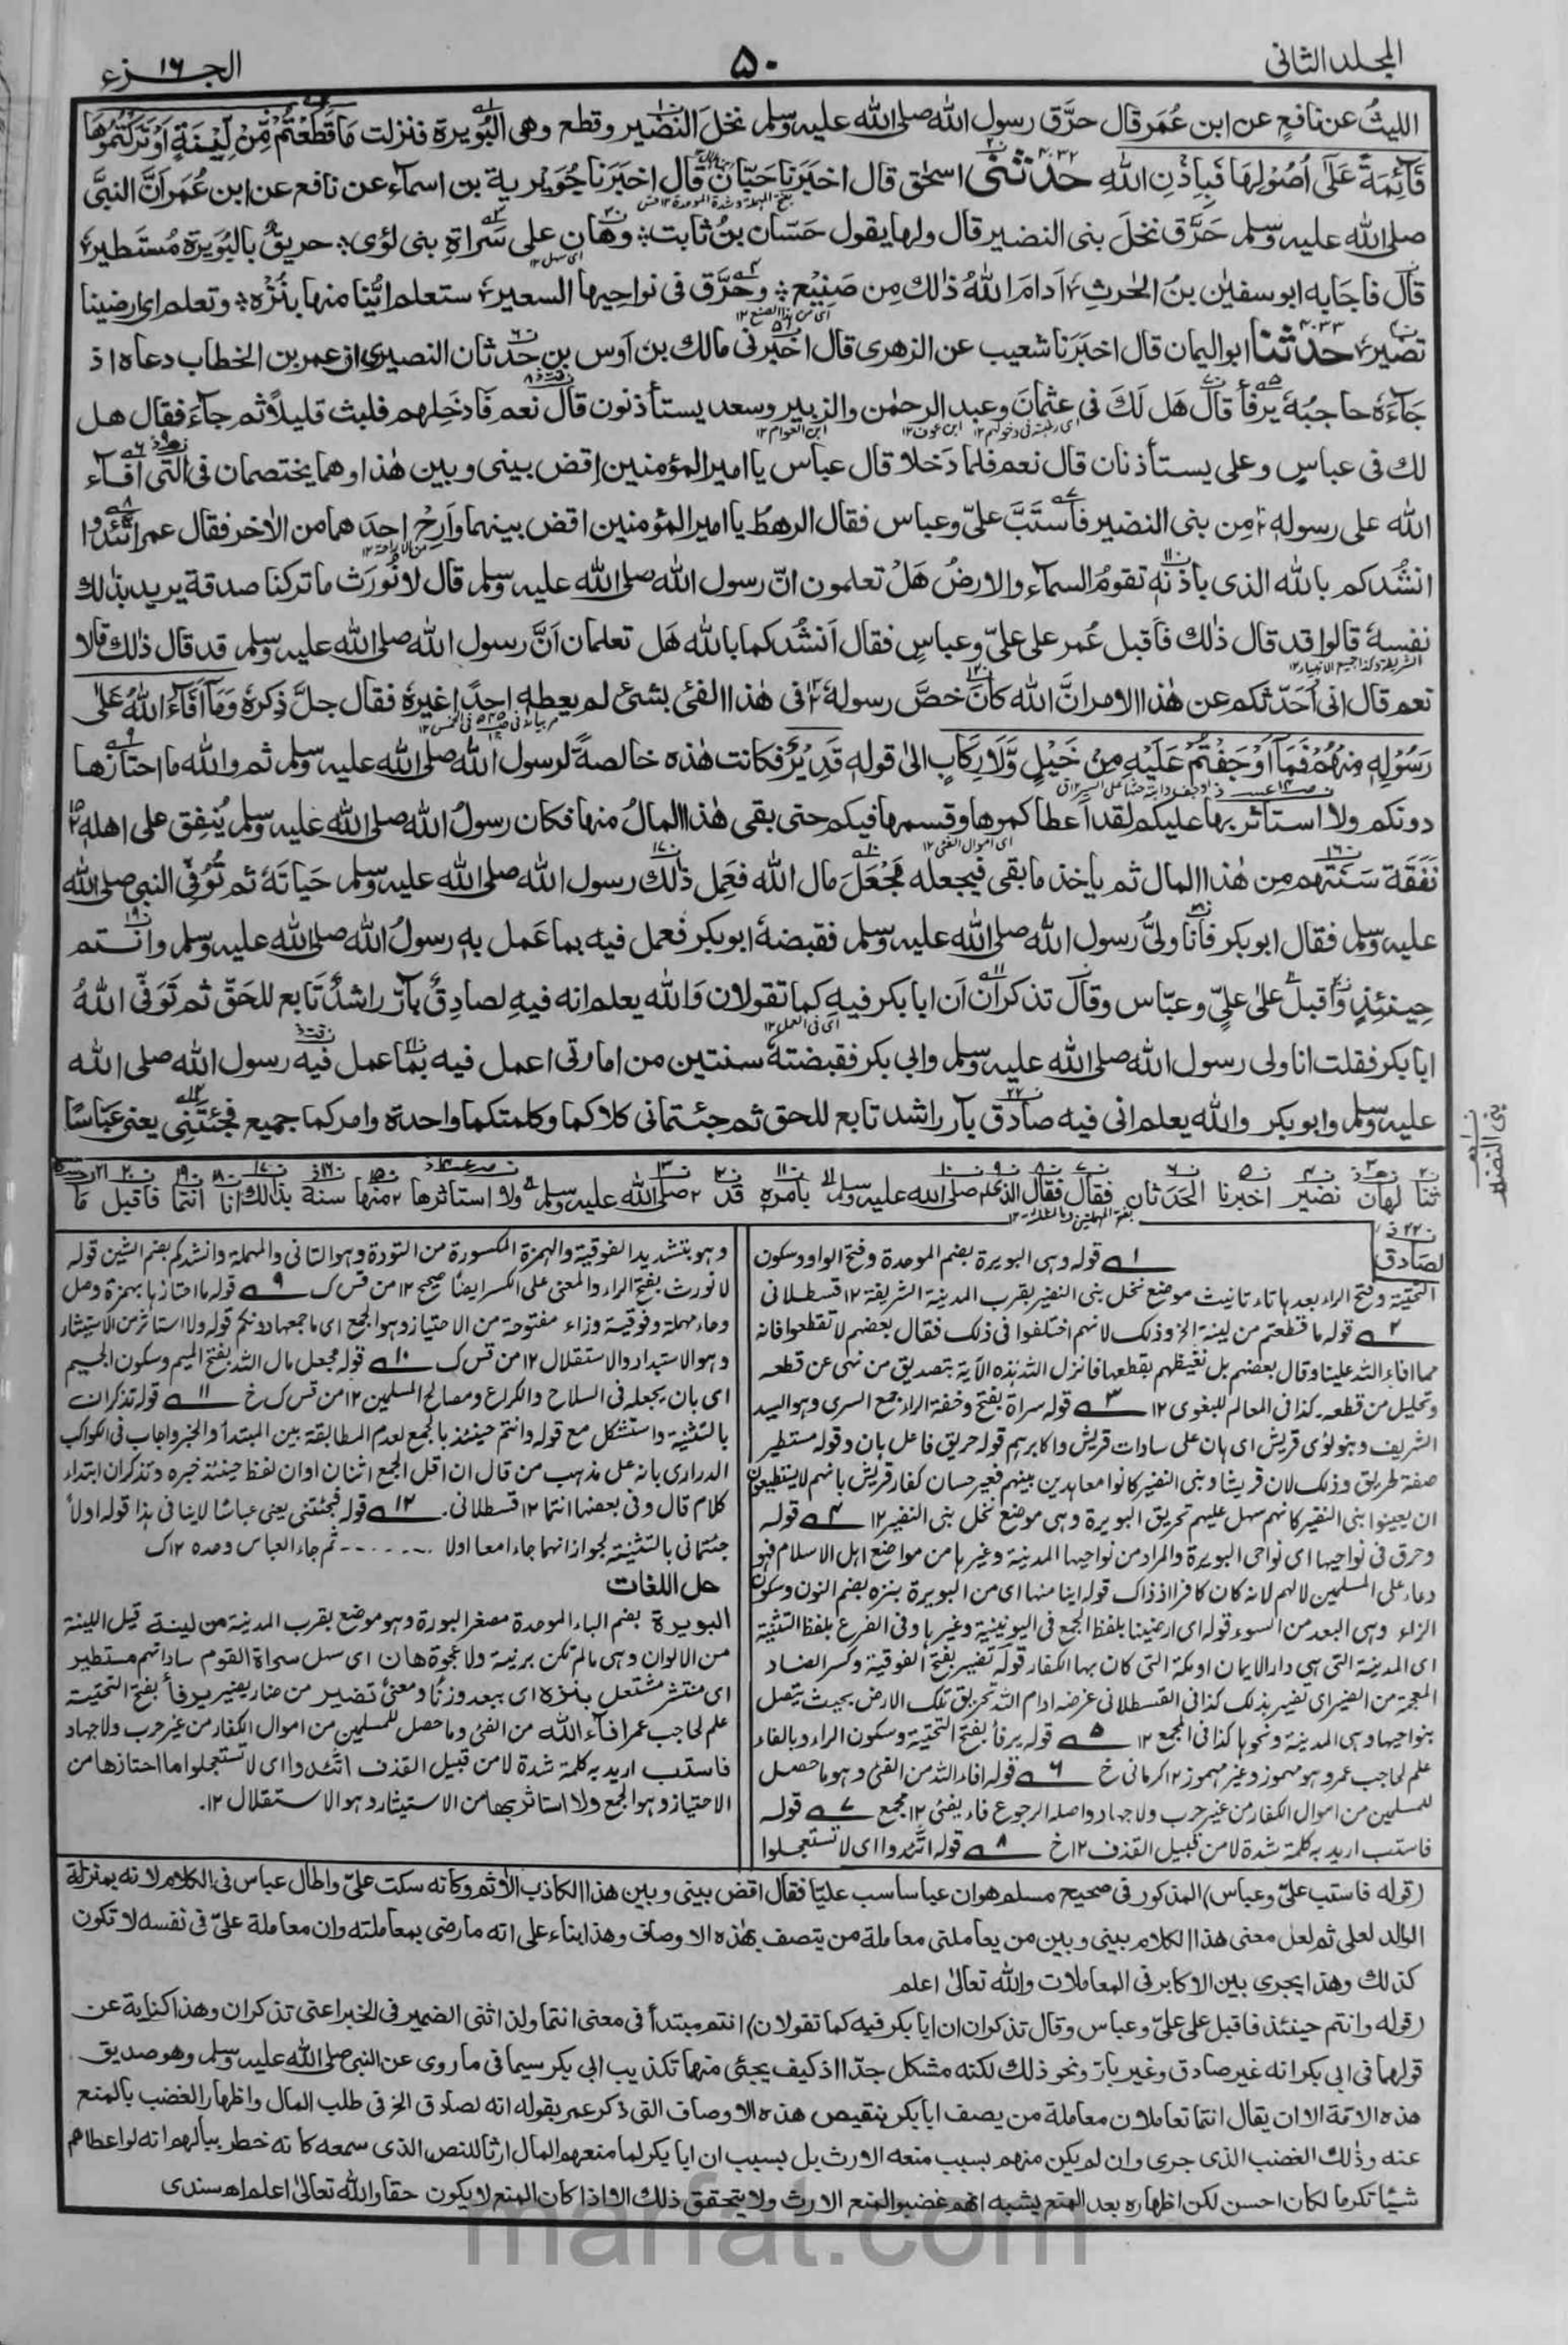 المجلد الثانی
۵۰
الجـــزء ۱۶
الليثُ عن نافعٍ عن ابن عُمَر قال حرَّق رسول الله صلى الله عليه وسلم نخلَ النضير وقطع وهي البُوَيرة فنزلت مَا قَطَعْتُمْ مِّنْ لِّيْنَةٍ اَوْ تَرَكْتُمُوْهَا
قَآئِمَةً عَلٰٓى اُصُوْلِهَا فَبِاِذْنِ اللهِ حدثنی اسحٰق قال اخبَرَنا حَبّان قال اخبَرَنا جُوَيْرية بن اسماء عن نافع عن ابن عُمَر اَنَّ النبیَّ
صلى الله عليه وسلم حَرَّق نخلَ بنی النضیر قال ولها يقول حَسّان بنُ ثابت وهَان علی سَراةِ بنی لؤی حريقٌ بالبُوَيرة مُستَطير
قال فاجَابه ابو سفيٰن بنُ الحٰرثِ اَدامَ اللهُ ذٰلك مِن صَنِيْعٍ وحَرَّق فی نواحیها السعیر ستعلم ایُّنا منها بنُزْه وتعلم ای ارضینا
تضیر حدثنا ابو الیمان قال اخبَرَنا شعیب عن الزهری قال اخبَرنی مالك بن اَوس بن حَدثان النصیری ان عمر بن الخطاب دعاه اذ
جَآءَهٗ حاجبُهٗ یرفأ قال هَل لَكَ فی عثمانَ وعبد الرحمٰن والزبیر وسعد یستأذنون قال نعم فَادخِلهم فلبث قلیلاً ثم جاءَ فقال هل
لك فی عباسٍ وعلی یستأذنان قال نعم فلما دَخلا قال عباس یا امیر المؤمنین اِقض بینی وبین هٰذا وهما یختصمان فی التی افآء
الله علی رسولهٖ مِن بنی النضیر فَاستَبَّ علیٌّ وعباس فقال الرهطُ یا امیر المؤمنین اقض بینهما واَرِحْ احدَهما من الاٰخر فقال عمر اتَّئدوا
انشُدکم بالله الذی باذنهٖ تقومُ السمآء والارضُ هَلْ تعلمون انّ رسول الله صلى الله عليه وسلم قال لا نُورَث ما ترکنا صدقة یرید بذٰلك
نفسهٗ قالوا قد قال ذٰلك فَاقبل عُمر علی علیّ وعباسٍ فقال اَنشُدکما بالله هَل تعلمان اَنَّ رسول الله صلى الله عليه وسلم قد قال ذٰلك قالا
نعم قال انی اُحَدّثکم عن هٰذا الامر انَّ الله کان خصَّ رسولهٗ فی هٰذا الفئ بشئ لم یعطهٖ احدًا غیرهٗ فقال جلَّ ذِکرهٗ وَمَآ اَفَآءَ اللهُ عَلٰی
رَسُوْلِهٖ مِنْهُمْ فَمَآ اَوْجَفْتُمْ عَلَیْهِ مِنْ خَیْلٍ وَّلَا رِکَابٍ الیٰ قولهٖ قَدِیْرٌ فکانت هٰذه خالصةً لرسول الله صلى الله عليه وسلم ثم والله ما احتازها
دونکم ولا استأثر بها علیکم لقد اَعطاکموها وقسمها فیکم حتی بقی هٰذا المالُ منها فکان رسولُ الله صلى الله عليه وسلم یُنفِق علی اهلهٖ
نَفَقَة سَنَتهم مِن هٰذا المال ثم یاخذ ما بقی فیجعله مَجْعَلَ مال الله فعَمِل ذٰلك رسول الله صلى الله عليه وسلم حَیاتَهٗ ثم تُوُفّی النبی صلى الله
علیه وسلم فقال ابو بکر فاَنا ولیُّ رسول الله صلى الله عليه وسلم فقبضهٗ ابو بکر فعمل فیه بما عَمل بهٖ رسولُ الله صلى الله عليه وسلم وانتم
حِینئِذٍ وَاقبل علیٰ علیٍّ وعبّاس وقال تذکران اَن ابا بکر فیهِ کما تقولان وَالله یعلم انه فیهِ لصادِقٌ بآرٌّ راشدٌ تَابع للحَقّ ثم تَوَفّٰی اللهُ
ابا بکر فقلت انا ولی رسول الله صلى الله عليه وسلم وابی بکر فقبضتهٗ سنتین من امارتی اعمل فیه بما عمل فیه رسول الله صلى الله
علیه وسلم وابو بکر والله یعلم انی فیه صادق بآر راشد تابع للحق ثم جئتمانی کلاکما وکلمتکما واحدة وامرکما جمیع فجئتَنِی یعنی عَبّاسًا
بنی النضیر
ثنا لهان نضیر اخبرنا الحَدَثان فقال فقال الذی صلى الله عليه وسلم بامره قد صلى الله عليه وسلم ولا استاثرها منها سنة بذالك انا انتما فاقبل ما
لصادق
۱ قوله وہی البویرة بضم الموحدة وفتح الواو وسکون
التحتیة وفتح الراء بعدہا تاء تانیث موضع نخل بنی النضیر بقرب المدینة الشریفة ۱۲ قسطلانی
۲ قوله ما قطعتم من لینة الخ وذلک لانهم اختلفوا فی ذلک فقال بعضهم لا تقطعوا فانه
مما افاء الله علینا وقال بعضهم بل نغیظهم بقطعها فانزل الله ہذہ الآیة بتصدیق من نهی عن قطعه
وتحلیل من قطعه۔ کذا فی المعالم للبغوی ۱۲ ۳ قوله سراة بفتح وخفة الراء جمع السری وهو السید
الشریف وبنو لؤی قریش ای ہان علی سادات قریش واکابرہم قوله حریق فاعل ہان وقوله مستطیر
صفة لحریق وذلک لان قریشا وبنی النضیر کانوا معاهدین بینهم فعیر حسان کفار قریش بانهم لا یستطیعون
ان یعینوا بنی النضیر کانهم سهل علیهم تحریق البویرة وہی موضع نخل بنی النضیر ۱۲ ۴ قوله
وحرق فی نواحیها ای نواحی البویرة والمراد من نواحیها المدینة وغیرہا من مواضع اہل الاسلام فهو
دعاء علی المسلمین لا لهم لانه کان کافرا اذ ذاک قوله اینا منها ای من البویرة بنزہ بضم النون وسکون
الزاء وہی البعد من السوء قوله ای ارضینا بلفظ الجمع فی الیونینیة وغیرہا وفی الفرع بلفظ التثنیة
ای المدینة التی ہی دار الایمان او مکة التی کان بها الکفار قوله تضیر بفتح الفوقیة وکسر الضاد
المعجمة من الضیر ای تضیر بذلک کذا فی القسطلانی غرضه ادام الله تحریق تلک الارض بحیث یتصل
بنواحیها وہی المدینة ونحوہا کذا فی المجمع ۱۲ ۵ قوله یرفأ بفتح التحتیة وسکون الراء وبالفاء
علم لحاجب عمر وہو مهموز وغیر مهموز ۱۲ کرمانی خ ۶ قوله افاء الله من الفئ وہو ما حصل
للمسلمین من اموال الکفار من غیر حرب ولا جهاد واصله الرجوع فاء یفئ ۱۲ مجمع ۷ قوله
فاستب ارید به کلمة شدة لا من قبیل القذف ۱۲ خ ۸ قوله اتئدوا ای لا تستعجلوا
وہو بتشدید الفوقیة والهمزة المکسورة من التودة وہو التانی والمهملة وانشدکم بضم الشین قوله
لا نورث بفتح الراء والمعنی علی الکسر ایضا صحیح ۱۲ من قس ک ۹ قوله ما احتازہا بهمزة وصل
وحاء مهملة وفوقیة وزاء مفتوحة من الاحتیاز وہو الجمع ای ما جمعها دونکم قوله ولا استاثر من الاستیثار
وہو الاستبداد والاستقلال ۱۲ من قس ک ۱۰ قوله مجعل مال الله بفتح المیم وسکون الجیم
ای بان یجعله فی السلاح والکراع ومصالح المسلمین ۱۲ من قس ک خ ۱۱ قوله تذکران
بالتثنیة واستشکل مع قوله وانتم حینئذ بالجمع لعدم المطابقة بین المبتدأ والخبر واجاب فی الکواکب
الدراری بانه علی مذہب من قال ان اقل الجمع اثنان او ان لفظ حینئذ خبره وتذکران ابتداء
کلام قال وفی بعضها انتما ۱۲ قسطلانی۔ ۱۲ قوله فجئتنی یعنی عباسا لا ینافی ہذا قوله اولاً
جئتمانی بالتثنیة لجواز انهما جاءا معا اولا ۔۔۔۔۔۔ ثم جاء العباس وحده ۱۲ ک
حل اللغات
البویرة بضم الباء الموحدة مصغر البورة وہو موضع بقرب المدینة من لینة قیل اللینة
من الالوان وہی ما لم تکن برنیة ولا عجوة هان ای سهل سراة القوم ساداتهم مستطیر
ای منتشر مشتعل بنزه ای ببعد وزنًا ومعنیً تضیر من ضار یضیر یرفأ بفتح التحتیة
علم لحاجب عمر افآء الله من الفئ وما حصل للمسلمین من اموال الکفار من غیر حرب ولا جهاد
فاستب ارید به کلمة شدة لا من قبیل القذف اتئدوا ای لا تستعجلوا ما احتازها من
الاحتیاز وہو الجمع ولا استاثر بها من الاستیثار وہو الاستقلال ۱۲۔
(قوله فاستب علیّ وعباس) المذکور فی صحیح مسلم هو ان عباسا سب علیّا فقال اقض بینی وبین هذا الکاذب الأثم وکانه سکت علیّ واطال عباس فی الکلام لانه بمنزلة
الوالد لعلی ثم لعل معنی هذا الکلام بینی وبین من یعاملنی معاملة من یتصف بهذه الاوصاف وهذا بناء علی انه ما رضی بمعاملته وان معاملة علیّ فی نفسه لا تکون
کذلك وهذا یجری بین الاکابر فی المعاملات والله تعالیٰ اعلم
(قوله وانتم حینئذ فاقبل علی علیّ وعباس وقال تذکران ان ابا بکر فیه کما تقولان) انتم مبتدأ فی معنی انتما ولذا ثنی الضمیر فی الخبر اعنی تذکران وهذا کنایة عن
قولهما فی ابی بکر انه غیر صادق وغیر بارّ ونحو ذلك لکنه مشکل جدّا اذ کیف یجئی منهما تکذیب ابی بکر سیما فی ما روی عن النبی صلى الله عليه وسلم وهو صدیق
هذه الامّة الا ان یقال انتما تعاملان معاملة من یصف ابا بکر بنقیص هذه الاوصاف التی ذکر عمر بقوله انه لصادق الخ فی طلب المال واظهار الغضب بالمنع
عنه وذٰلك الغضب الذی جری وان لم یکن منهم بسبب منعه الارث بل بسبب ان ابا بکر لما منعهم المال ارثا للنص الذی سمعه کانه خطر ببالهم انه لو اعطاهم
شیئا تکرما لکان احسن لکن اظهاره بعد المنع یشبه انهم غضبوا لمنع الارث ولا یتحقق ذلك الا اذا کان المنع لا یکون حقا والله تعالیٰ اعلم اھ سندی
marfat.com